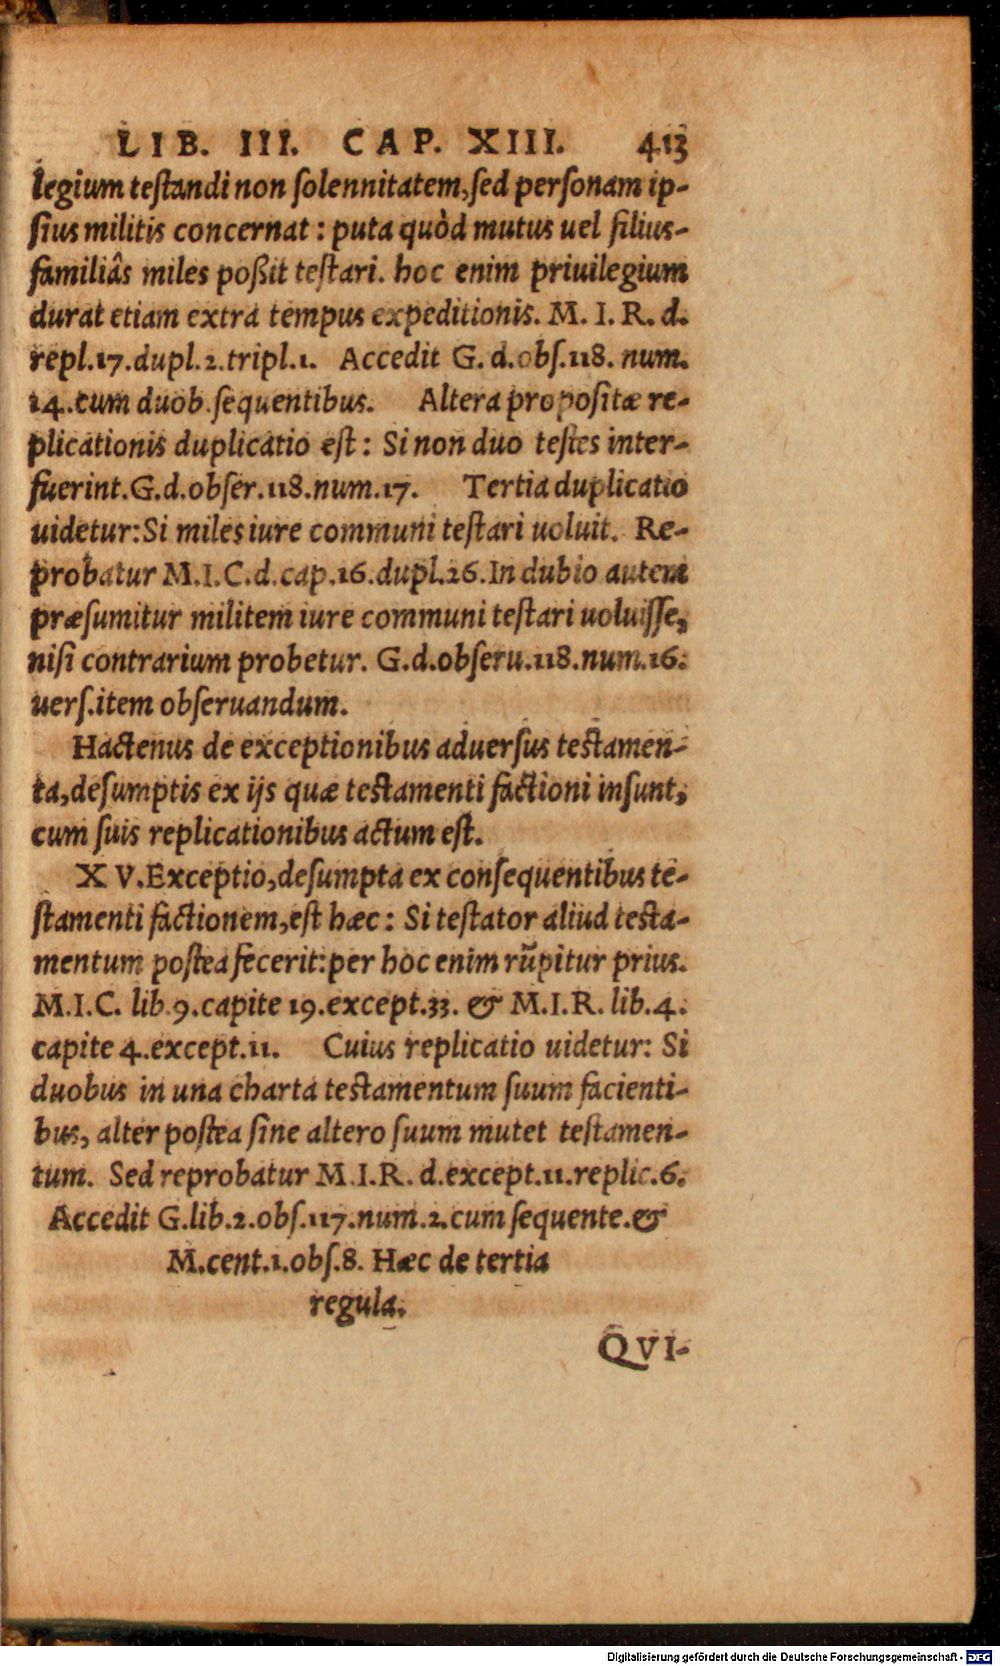 LIB. III. CAP. XIII. 413
legium testandi non solennitatem, sed personam ip-
sius militis concernat : puta quòd mutus uel filius-
familiâs miles poßit testari. hoc enim priuilegium
durat etiam extra tempus expeditionis. M. I. R. d.
repl.17.dupl.2.tripl.1. Accedit G. d.obs.118. num.
14.cum duob.sequentibus. Altera propositæ re-
plicationis duplicatio est : Si non duo testes inter-
fuerint.G.d.obser.118.num.17. Tertia duplicatio
uidetur:Si miles iure communi testari uoluit. Re-
probatur M.I.C.d.cap.16.dupl.26.In dubio autem
præsumitur militem iure communi testari uoluisse,
nisi contrarium probetur. G.d.obseru.118.num.16.
uers.item obseruandum.
Hactenus de exceptionibus aduersus testamen-
ta,desumptis ex ijs quæ testamenti factioni insunt,
cum suis replicationibus actum est.
XV.Exceptio,desumpta ex consequentibus te-
stamenti factionem,est hæc : Si testator aliud testa-
mentum postea fecerit:per hoc enim rūpitur prius.
M.I.C. lib.9.capite 19.except.33. & M.I.R. lib.4.
capite 4.except.11. Cuius replicatio uidetur: Si
duobus in una charta testamentum suum facienti-
bus, alter postea sine altero suum mutet testamen-
tum. Sed reprobatur M.I.R. d.except.11.replic.6.
Accedit G.lib.2.obs.117.num.2.cum sequente.&
M.cent.1.obs.8. Hæc de tertia
regula.
QVI-
Digitalisierung gefördert durch die Deutsche Forschungsgemeinschaft - DFG